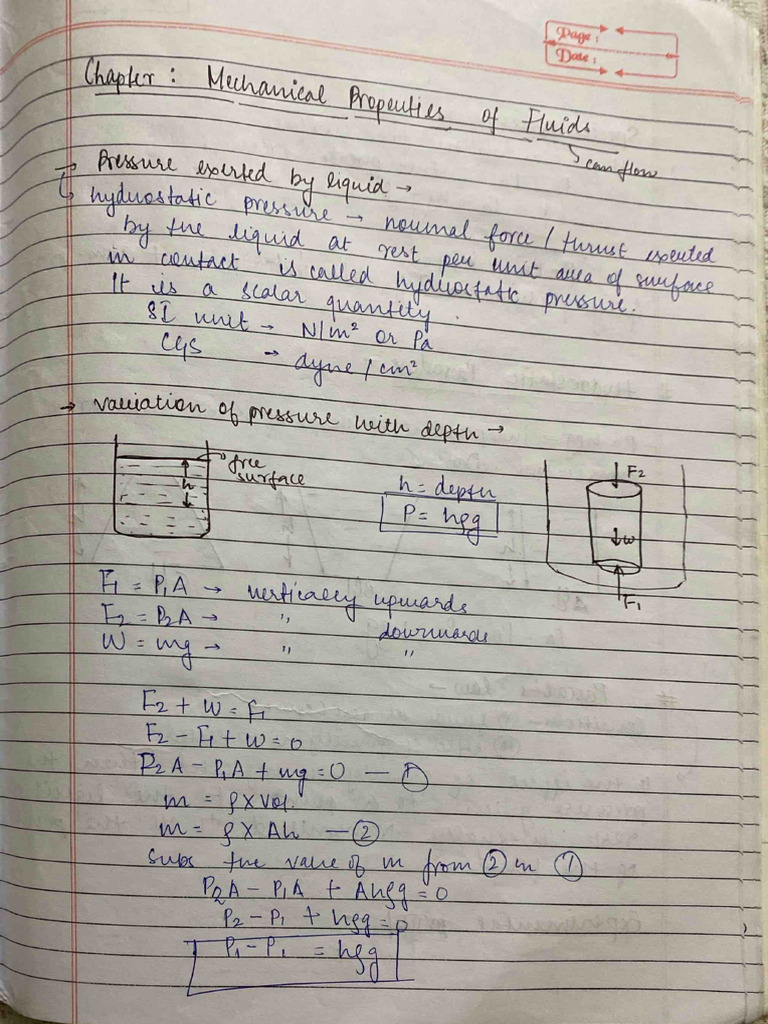 Page :
Date :
Chapter : Mechanical Properties of Fluids
can flow
→ Pressure exerted by liquid →
↳ hydrostatic pressure → normal force / thrust exerted
by the liquid at rest per unit area of surface
in contact is called hydrostatic pressure.
It is a scalar quantity.
SI unit → N/m² or Pa
CGS → dyne / cm²
→ variation of pressure with depth →
free
surface
h
h = depth
P = hρg
F2
↓w
F1
F1 = P1A → vertically upwards
F2 = P2A → " downwards
W = mg → " "
F2 + W = F1
F2 - F1 + W = 0
P2A - P1A + mg = 0 — ①
m = ρ × Vol.
m = ρ × Ah — ②
Subs the value of m from ② in ①
P2A - P1A + Ahρg = 0
P2 - P1 + hρg = 0
P1 - P2 = hρg